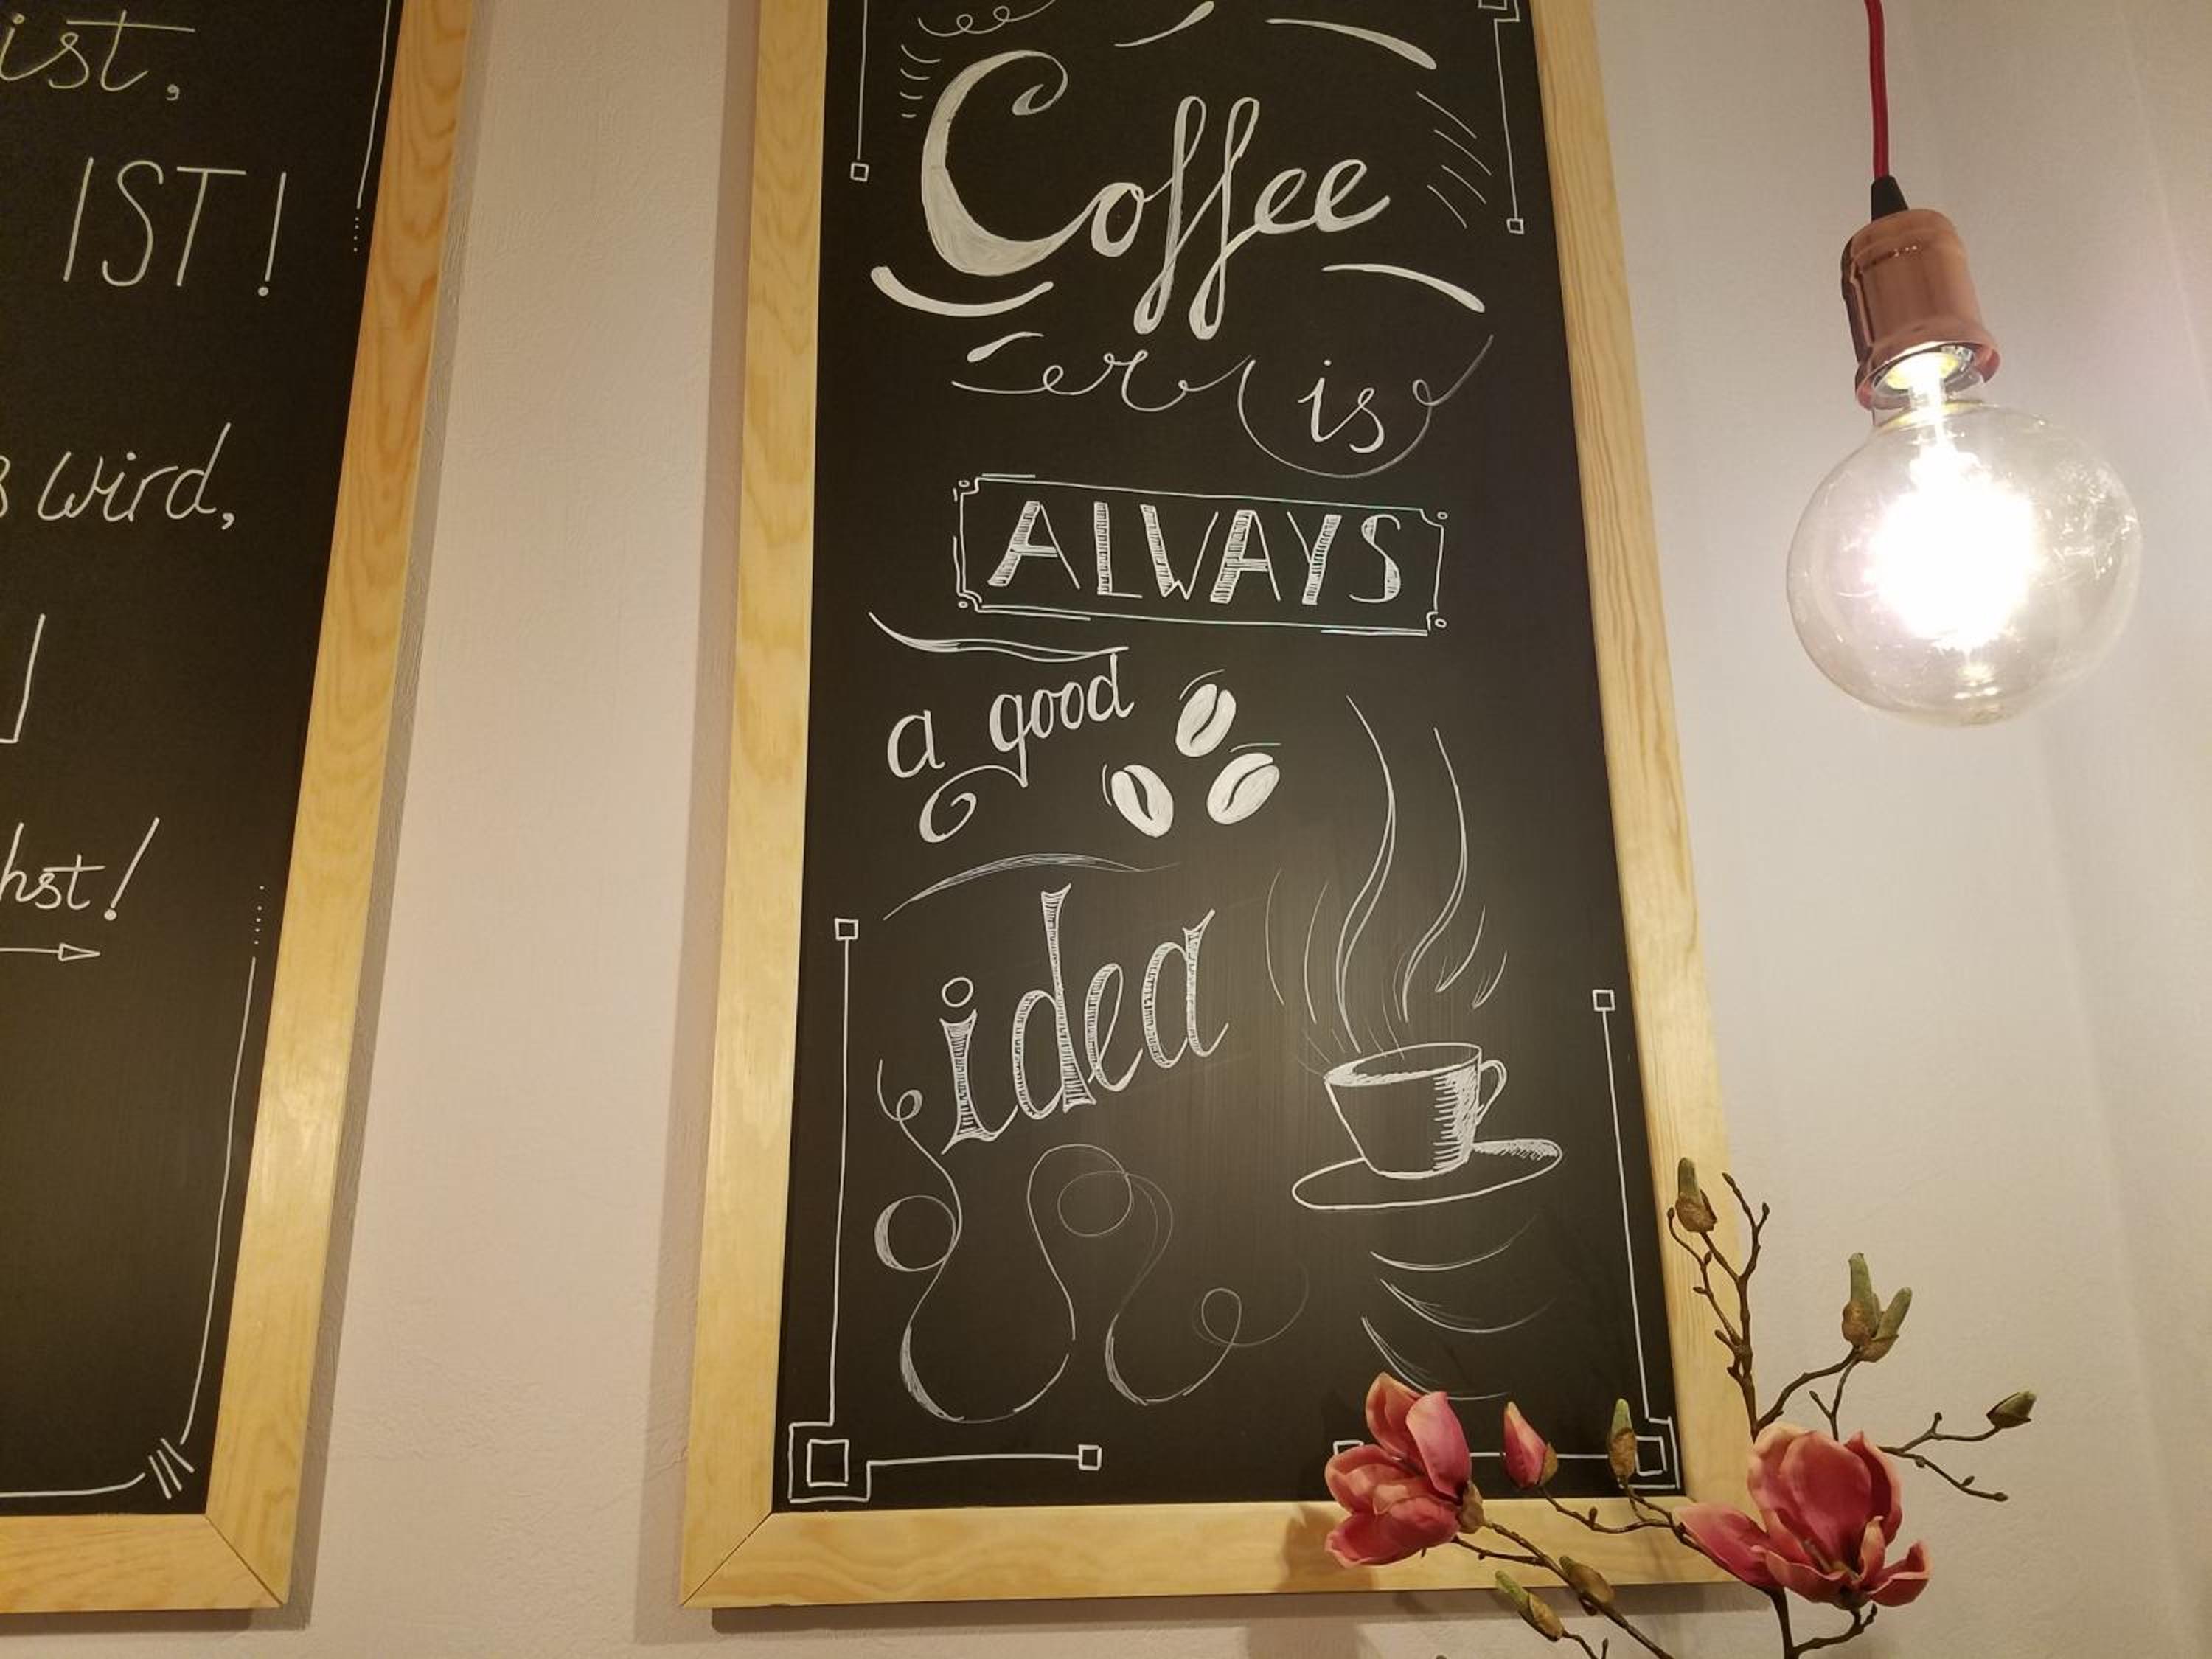 ist,
IST!
wird,
hst!
Coffee
is
ALWAYS
a good
idea